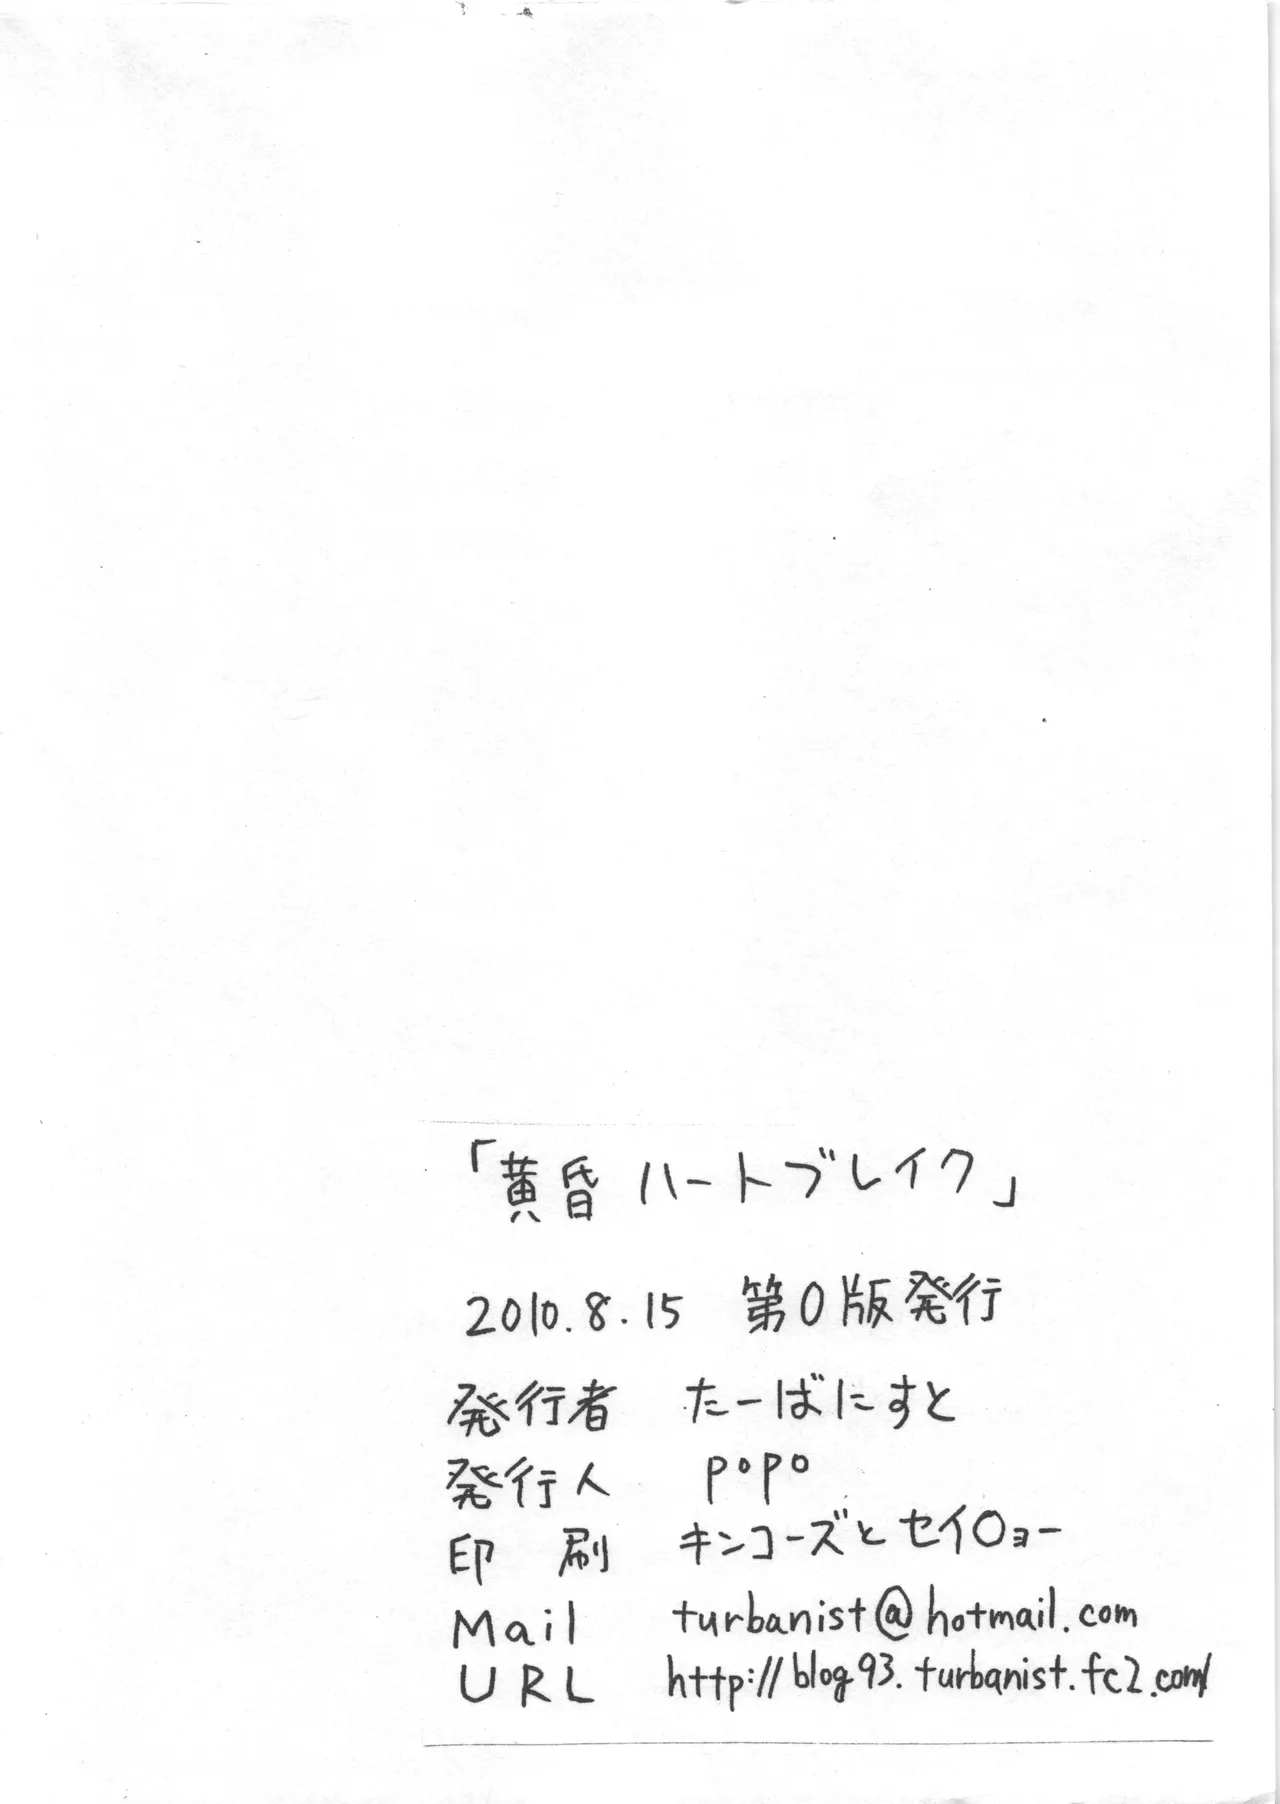 「黄昏ハートブレイク」
2010.8.15 第0版発行
発行者 たーばにすと
発行人 popo
印刷 キンコーズとセイ〇ョー
Mail turbanist@hotmail.com
URL http://blog93.turbanist.fc2.com/